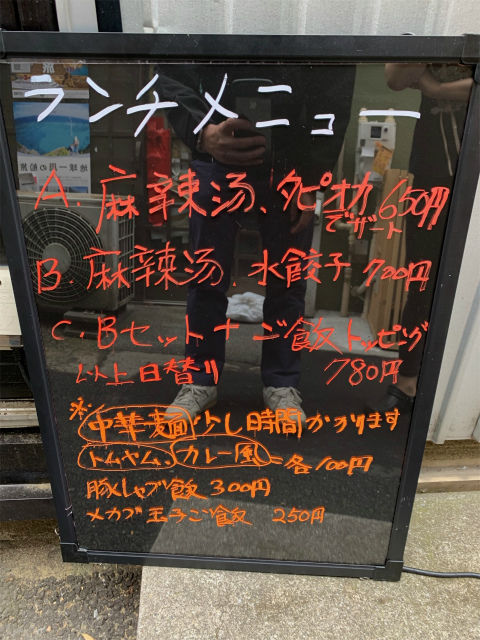 ランチメニュー
A.麻辣汤、タピオカ 650円
でザート
B.麻辣汤、水餃子 700円
C.Bセット+ご飯トッピング
以上日替り 780円
※中華麺少し時間かかります
トムヤム、カレー風=各100円
豚しゃぶ飯 300円
メカブ玉子ご飯 250円
地球一周の船旅